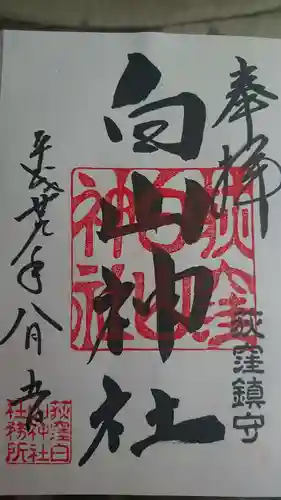 奉拝
荻窪鎮守
白山神社
荻窪白山神社
平成廿九年八月
荻窪白山神社社務所